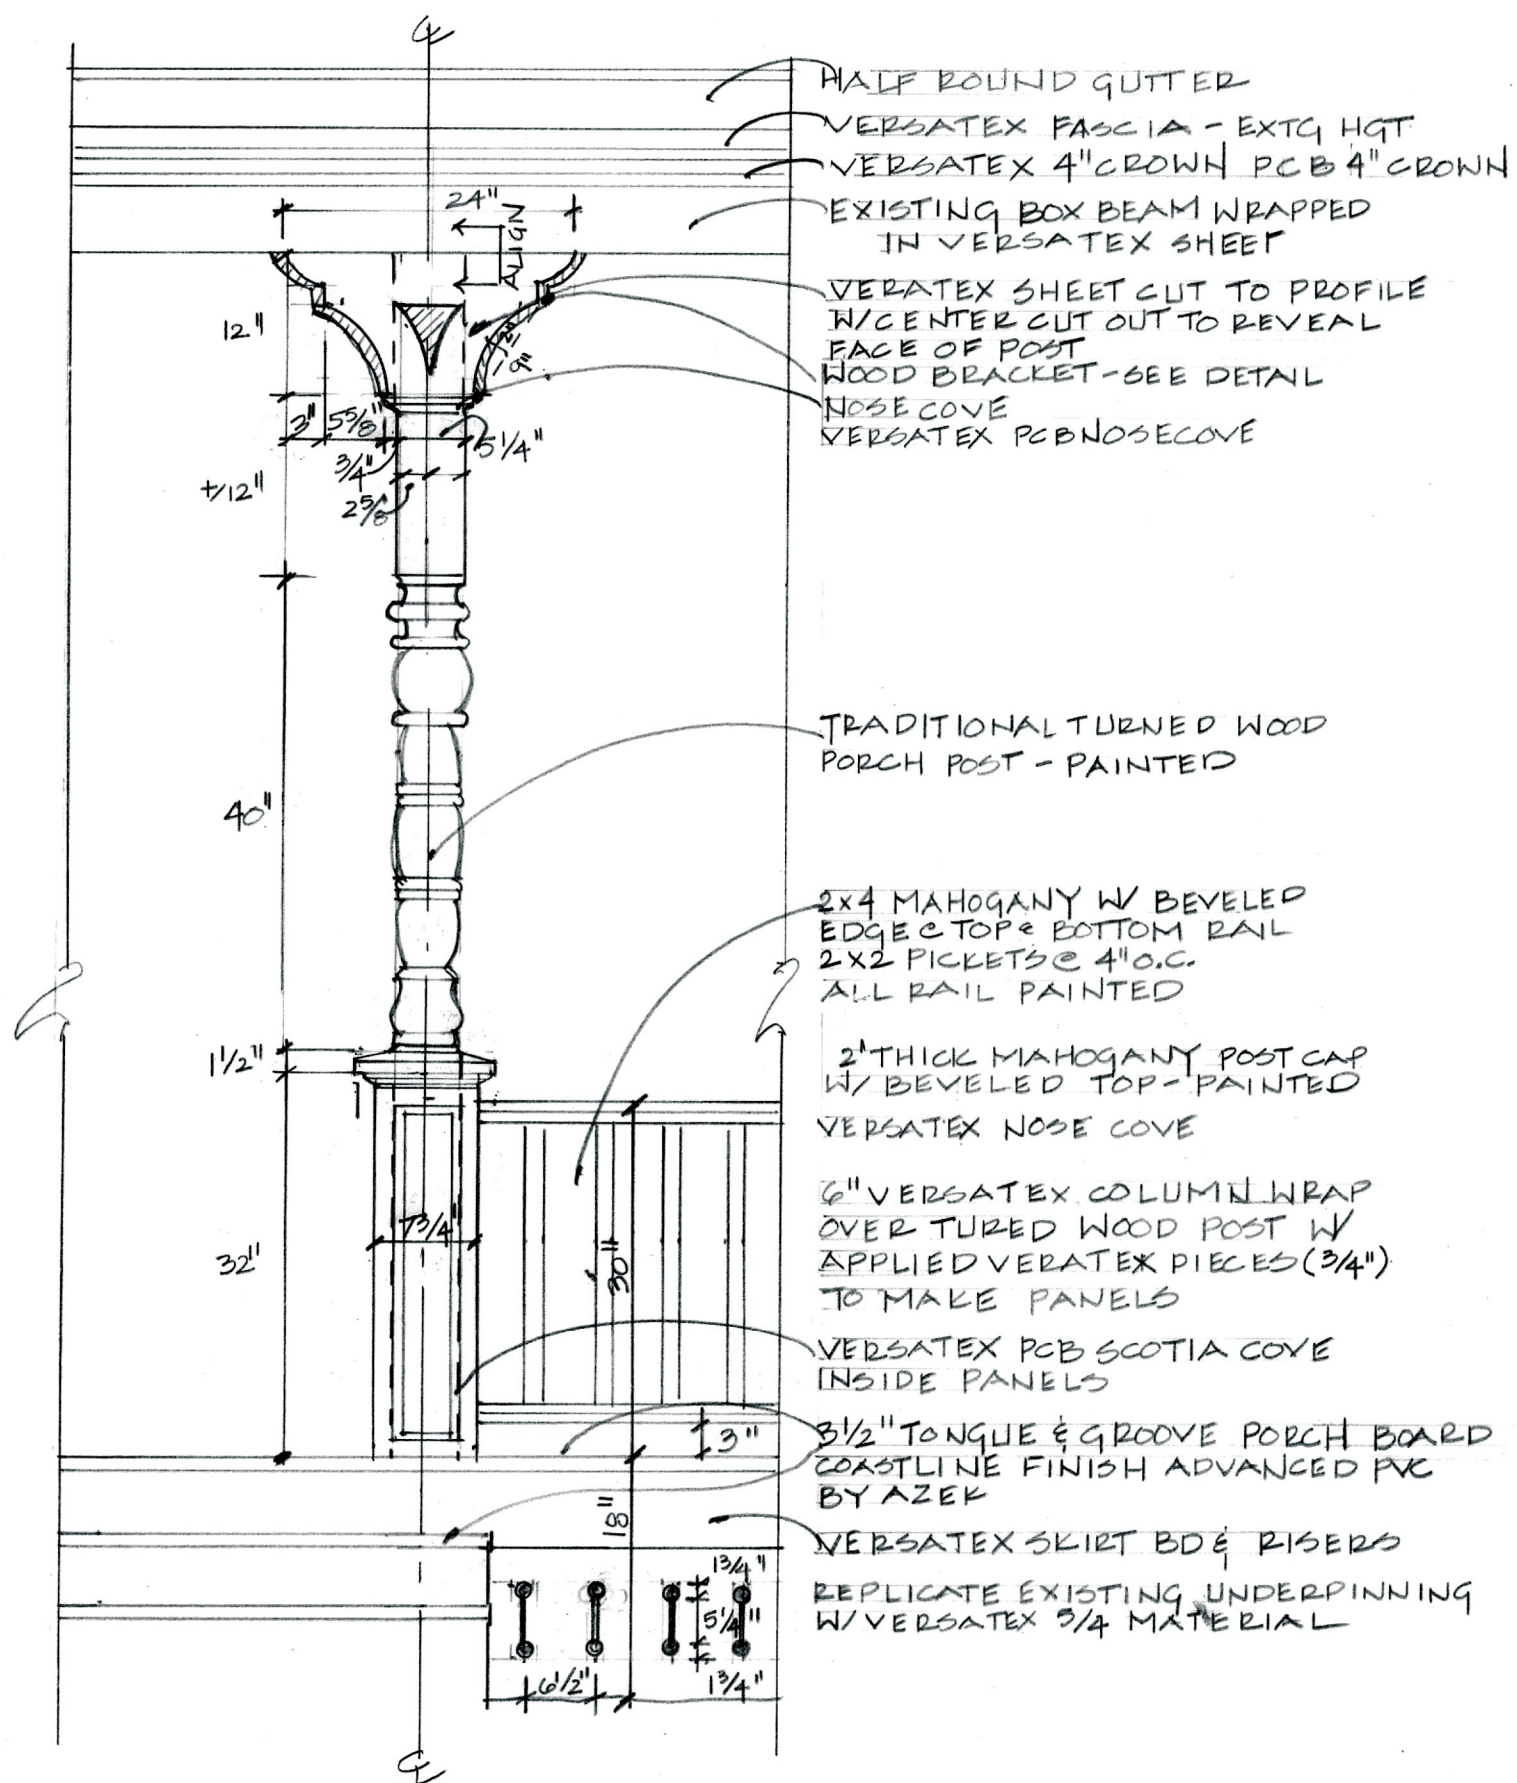 ℄
HALF ROUND GUTTER
VERSATEX FASCIA - EXTG HGT
VERSATEX 4" CROWN PCB 4" CROWN
EXISTING BOX BEAM WRAPPED
IN VERSATEX SHEET
24"
ALIGN
VERATEX SHEET CUT TO PROFILE
W/CENTER CUT OUT TO REVEAL
FACE OF POST
WOOD BRACKET - SEE DETAIL
NOSE COVE
VERSATEX PCBNOSECOVE
12"
9"
3"
5 5/8"
5 1/4"
3/4"
2 5/8
+/12"
TRADITIONAL TURNED WOOD
PORCH POST - PAINTED
40"
2x4 MAHOGANY W/ BEVELED
EDGE @ TOP & BOTTOM RAIL
2x2 PICKETS @ 4" O.C.
ALL RAIL PAINTED
1 1/2"
2" THICK MAHOGANY POST CAP
W/ BEVELED TOP - PAINTED
VERSATEX NOSE COVE
6" VERSATEX COLUMN WRAP
OVER TURED WOOD POST W/
APPLIED VERATEX PIECES (3/4")
TO MAKE PANELS
7 3/4"
32"
30"
VERSATEX PCB SCOTIA COVE
INSIDE PANELS
3"
3 1/2" TONGUE & GROOVE PORCH BOARD
COASTLINE FINISH ADVANCED PVC
BY AZEK
18"
VERSATEX SKIRT BD & RISERS
REPLICATE EXISTING UNDERPINNING
W/ VERSATEX 5/4 MATERIAL
1 3/4"
5 1/4"
6 1/2"
1 3/4"
℄